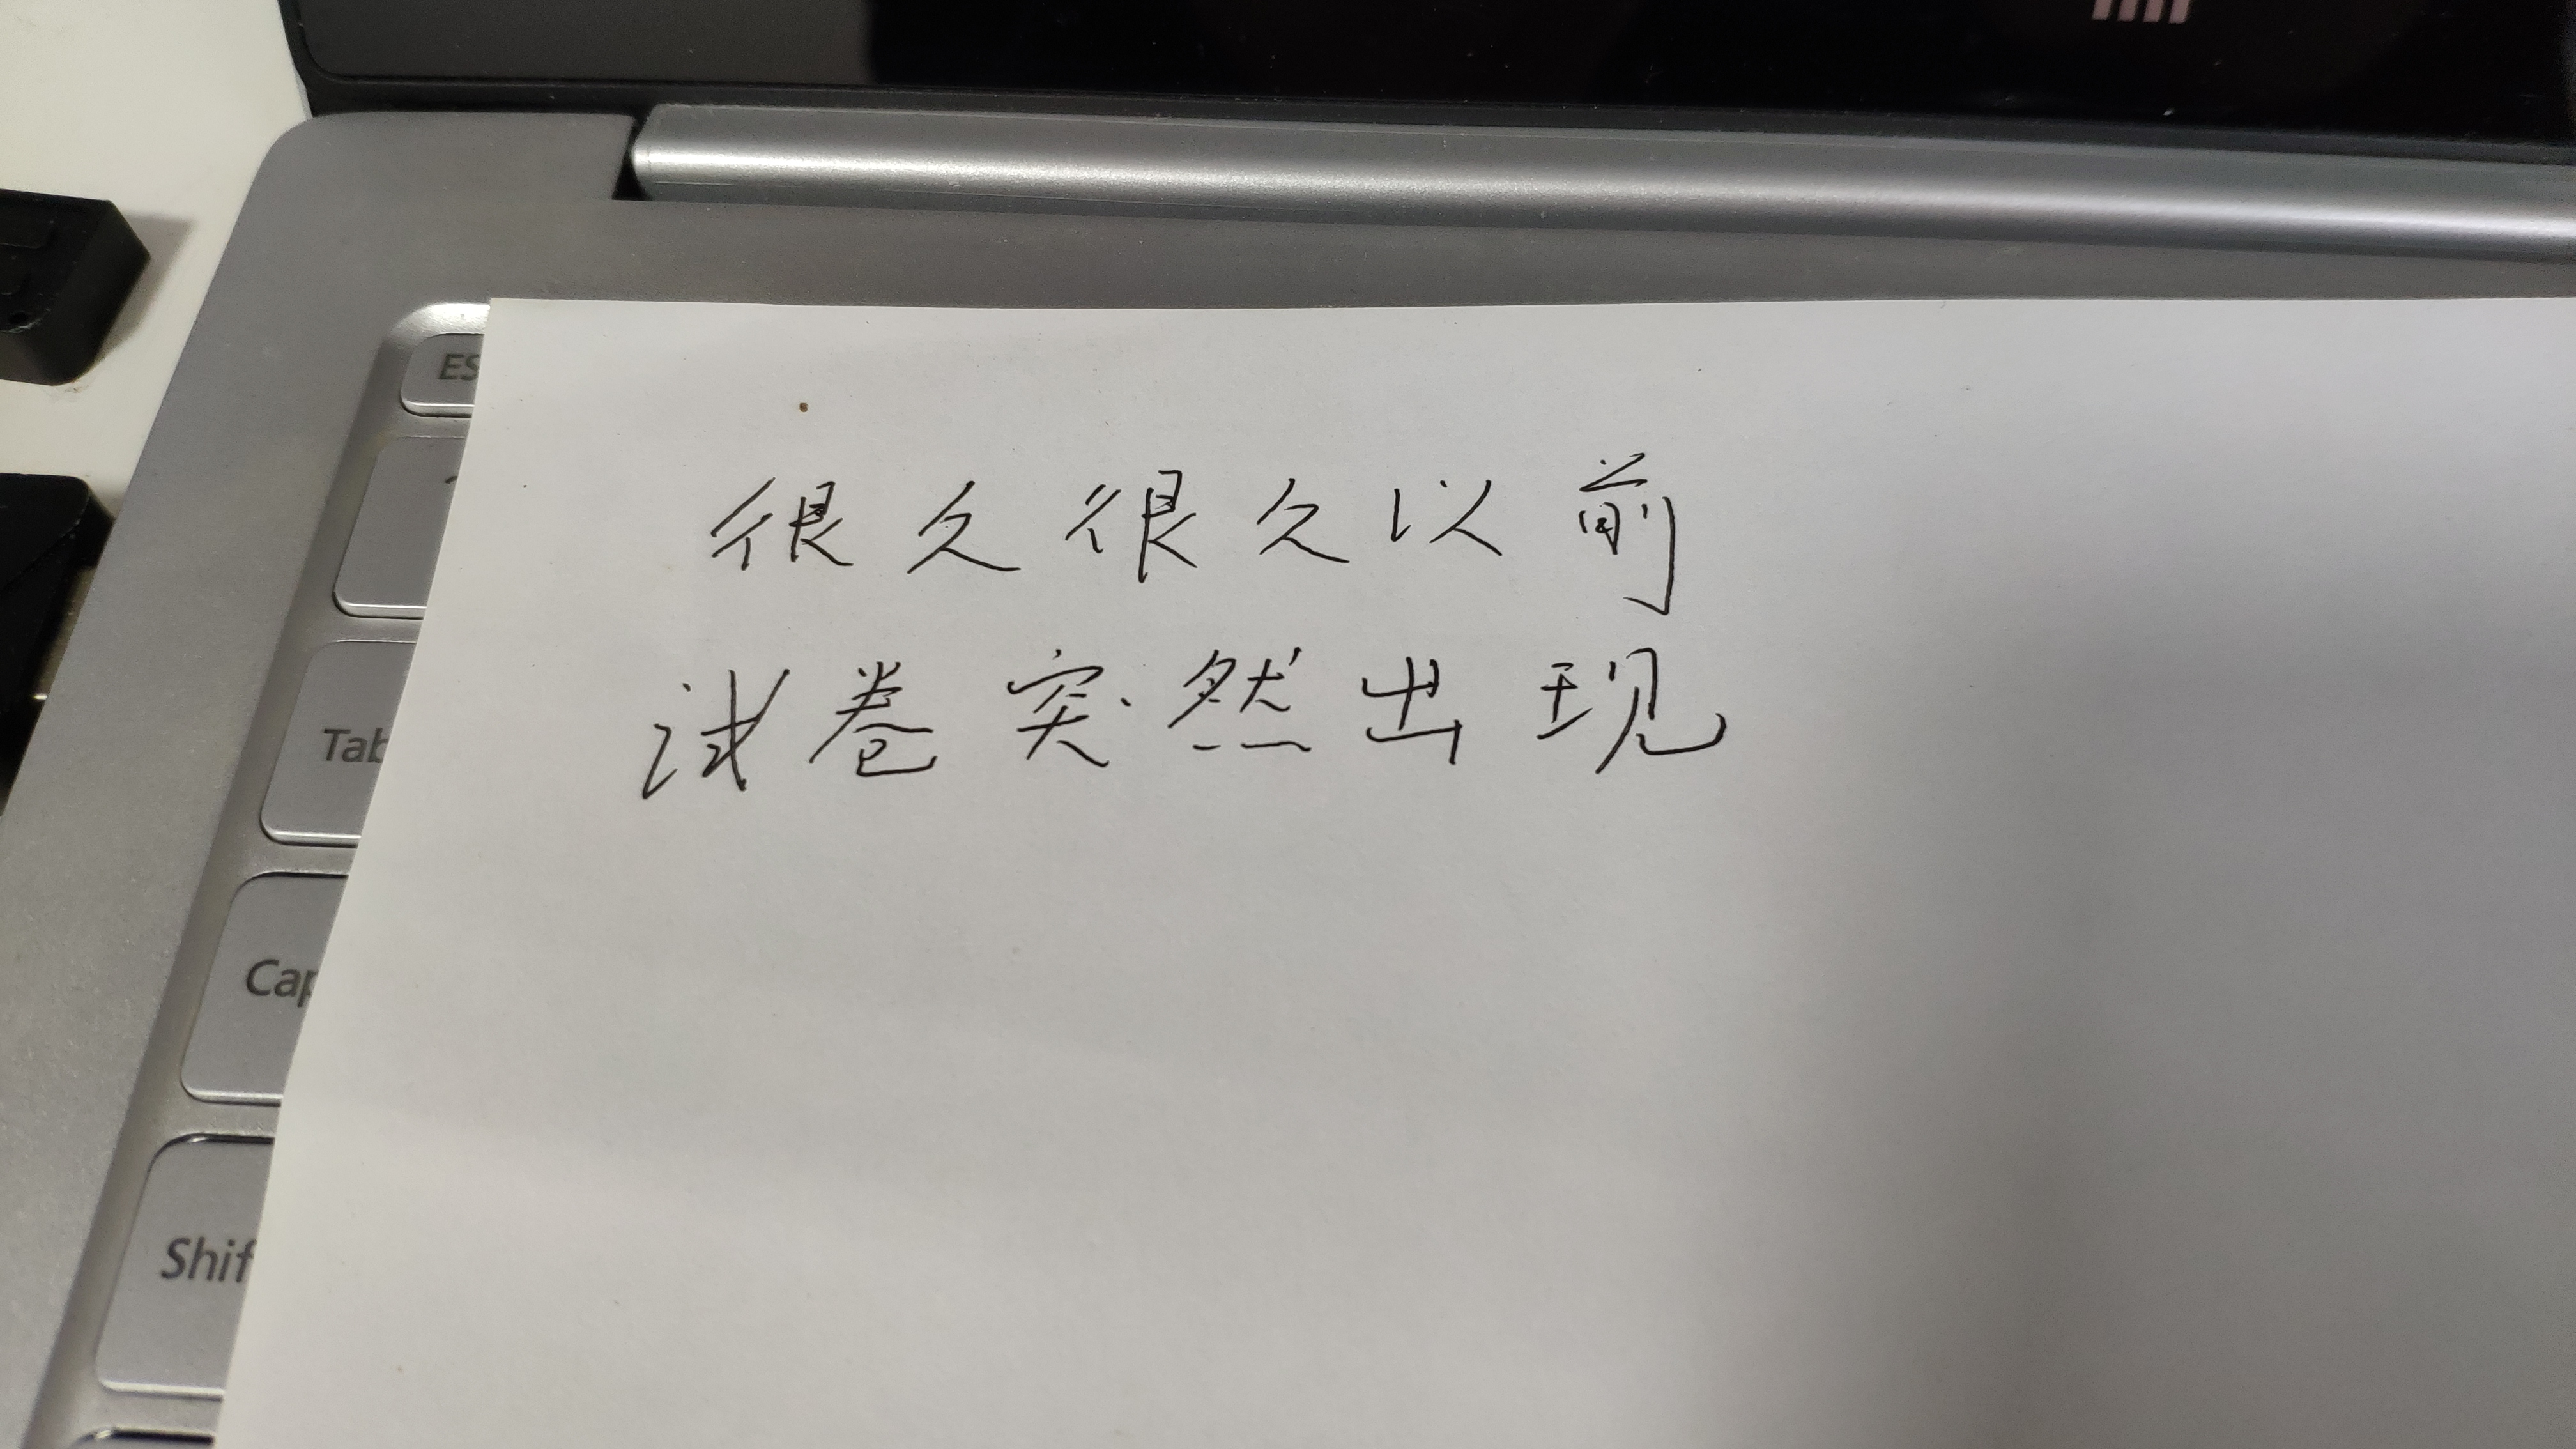 很久很久以前
试卷突然出现
ES
Tab
Cap
Shif